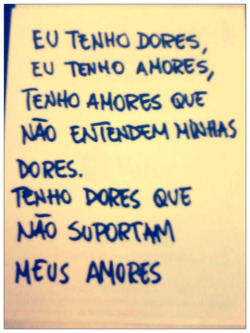 EU TENHO DORES,
EU TENHO AMORES,
TENHO AMORES QUE
NÃO ENTENDEM MINHAS
DORES.
TENHO DORES QUE
NÃO SUPORTAM
MEUS AMORES